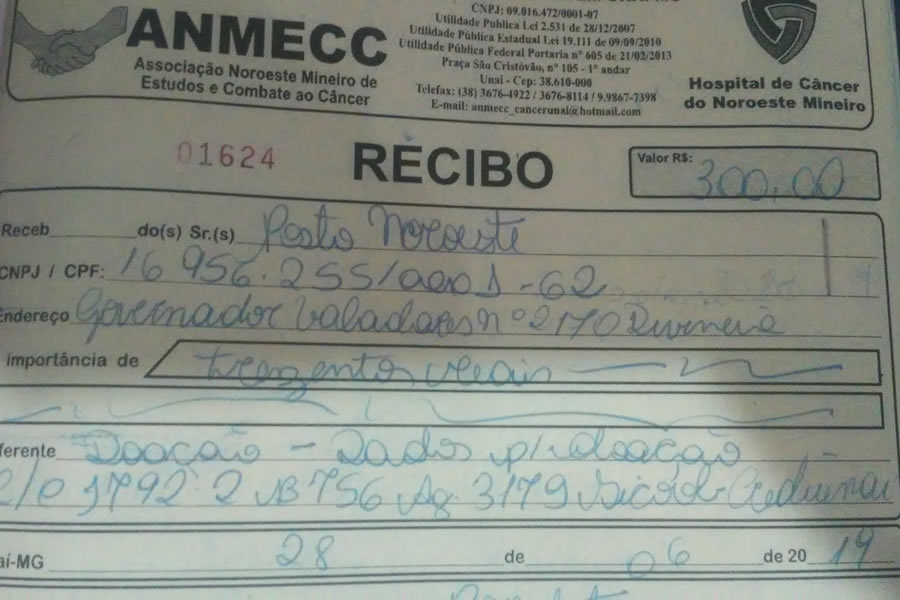 CNPJ: 09.016.472/0001-07
ANMECC
Utilidade Publica Lei 2.531 de 28/12/2007
Utilidade Pública Estadual Lei 19.111 de 09/09/2010
Utilidade Pública Federal Portaria nº 605 de 21/02/2013
Associação Noroeste Mineiro de
Estudos e Combate ao Câncer
Praça São Cristóvão, nº 105 - 1º andar
Unai - Cep: 38.610-000
Telefax: (38) 3676-4922 / 3676-8114 / 9.9867-7398
E-mail: anmecc_cancerunai@hotmail.com
Hospital de Câncer
do Noroeste Mineiro
01624
RECIBO
Valor R$: 300,00
Receb do(s) Sr.(s) Posto Noroeste
CNPJ / CPF: 16 956.255/0001-62
Endereço Governador Valadares nº 2170
importância de trezentos reais
ferente Doação - Dados p/ doação
C/C 1792-2 B 756 Ag 3179 Sicoob
aí-MG 28 de 06 de 2019